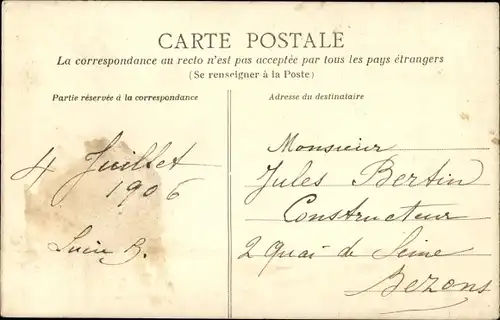 CARTE POSTALE
La correspondance au recto n'est pas acceptée par tous les pays étrangers
(Se renseigner à la Poste)
Partie réservée à la correspondance
4 Juillet
1906
Lucie B.
Adresse du destinataire
Monsieur
Jules Bertin
Constructeur
2 Quai de Seine
Bezons